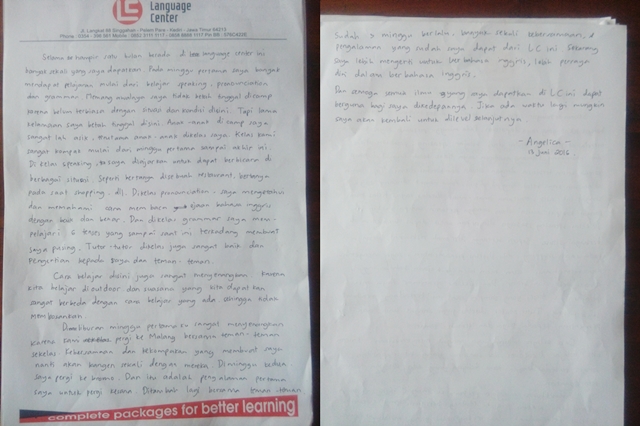 Language
Center
Jl. Langkat 88 Singgahan - Pelem Pare - Kediri - Jawa Timur 64213
Selama hampir satu bulan berada di language center ini
banyak sekali yang saya dapatkan. Pada minggu pertama saya banyak
mendapat pelajaran mulai dari belajar speaking, pronounciation
dan grammar. Memang awalnya saya tidak betah tinggal dicamp
karena belum terbiasa dengan situasi dan kondisi disini. Tapi lama
kelamaan saya betah tinggal disini. Anak-anak di camp saya
sangat lah asik, anak-anak dikelas saya. Kelas kami
sangat kompak mulai dari minggu pertama sampai akhir ini.
Di kelas speaking, saya diajarkan untuk dapat berbicara di
berbagai situasi. Seperti bertanya disebuah restaurant, bertanya
pada saat shopping, dll. Dikelas pronounciation saya mengetahui
dan memahami cara membaca ejaan bahasa inggris
dengan baik dan benar. Dan dikelas grammar saya mem-
pelajari 6 tenses yang sampai saat ini terkadang membuat
saya pusing. Tutor-tutor dikelas juga sangat baik dan
pengertian kepada saya dan teman-teman.
Cara belajar disini juga sangat menyenangkan karena
kita belajar di outdoor dan suasana yang kita dapatkan
sangat berbeda dengan cara belajar yang ada sehingga tidak
membosankan.
Diliburan minggu pertama itu sangat menyenangkan
karena kami pergi ke Malang bersama teman-teman
sekelas. Kebersamaan dan kekompakan yang membuat saya
nanti akan kangen sekali dengan mereka. Diminggu kedua
saya pergi ke bromo. Dan ini adalah pengalaman pertama
saya untuk pergi kesana. Ditambah lagi bersama teman-teman
complete packages for better learning
Sudah 3 minggu berlalu, banyak sekali kebersamaan,
pengalaman yang sudah saya dapat dari LC ini. Sekarang
saya lebih mengerti untuk berbahasa inggris, lebih percaya
diri dalam berbahasa inggris.
Dan semoga semua ilmu yang saya dapatkan di LC ini dapat
berguna bagi saya kedepannya. Jika ada waktu lagi mungkin
saya akan kembali untuk dilevel selanjutnya.
- Angelica -
13 juni 2016